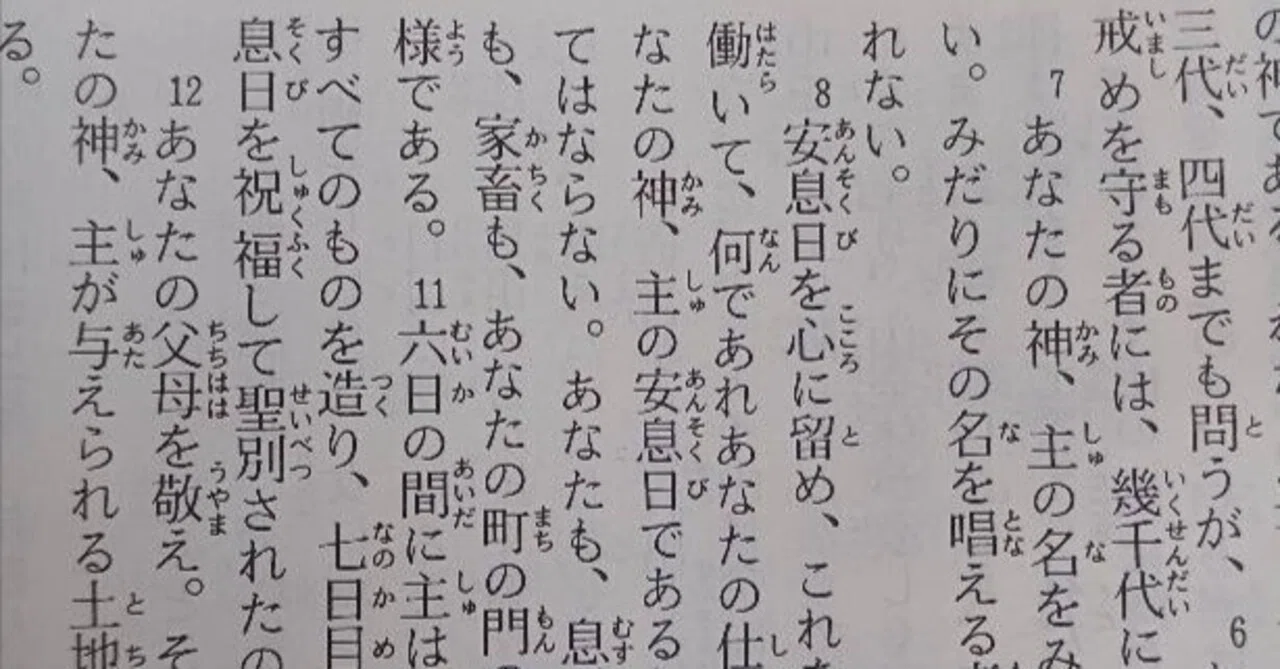 の神である
三代、四代までも問うが、6
戒めを守る者には、幾千代に
7 あなたの神、主の名をみ
い。みだりにその名を唱える
れない。
8 安息日を心に留め、これ
働いて、何であれあなたの仕
なたの神、主の安息日である
てはならない。あなたも、息
も、家畜も、あなたの町の門
様である。11 六日の間に主は
すべてのものを造り、七日目
息日を祝福して聖別されたの
12 あなたの父母を敬え。そ
たの神、主が与えられる土地
る。